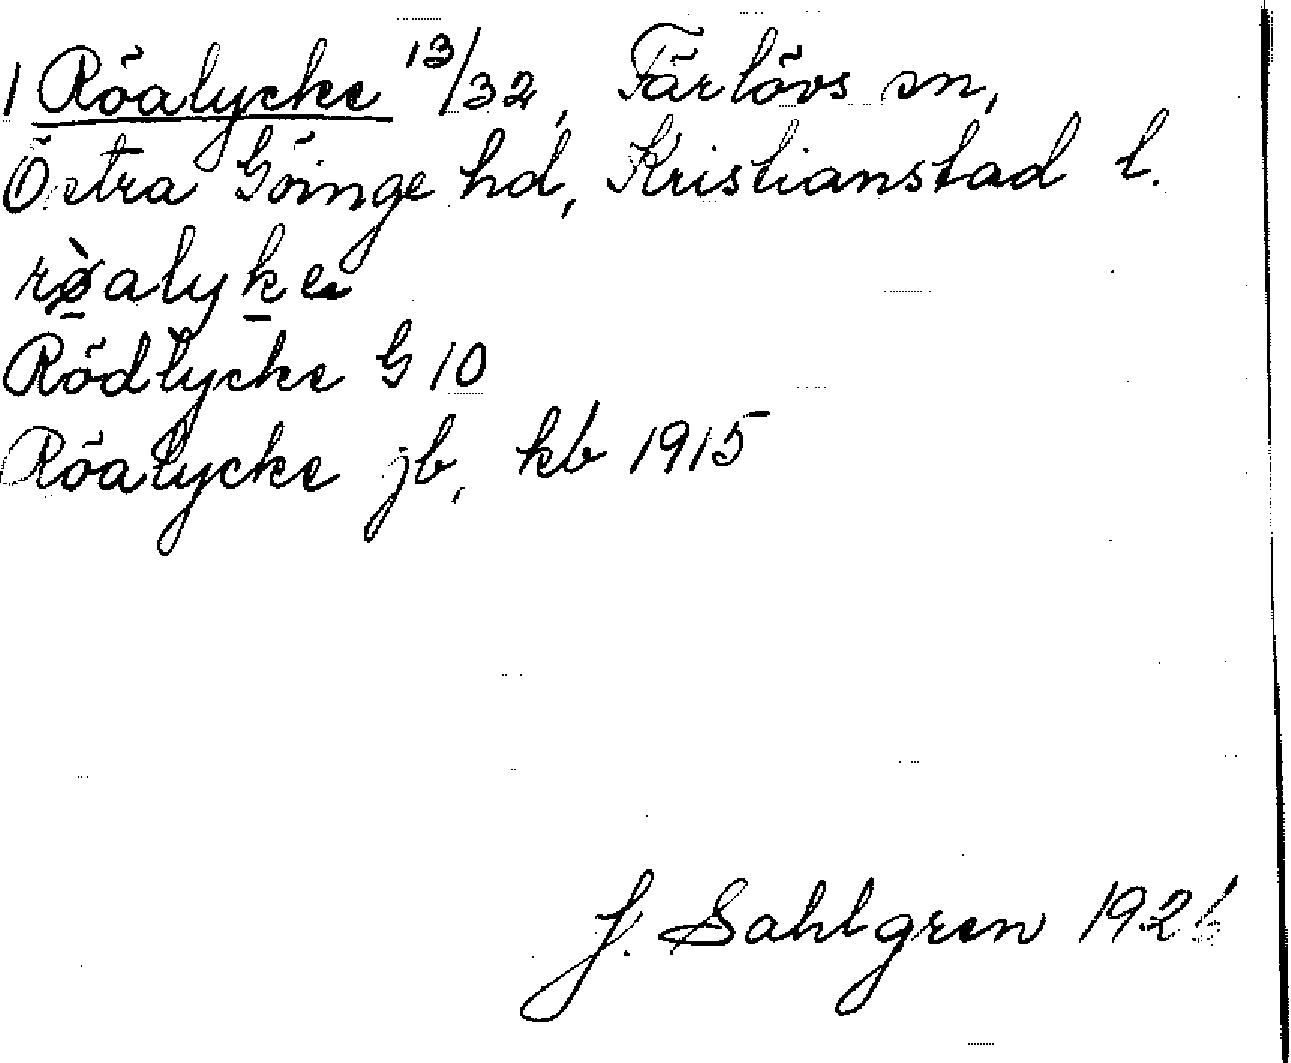 1 Röalycke 13/32, Färlövs sn,
Östra Göinge hd, Kristianstad l.
rø̀alyke
Rödlycke G 10
Röalycke jb, kb 1915
J. Sahlgren 1926